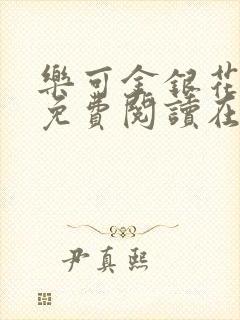 樂可金銀花
免費閱讀在
尹真熙